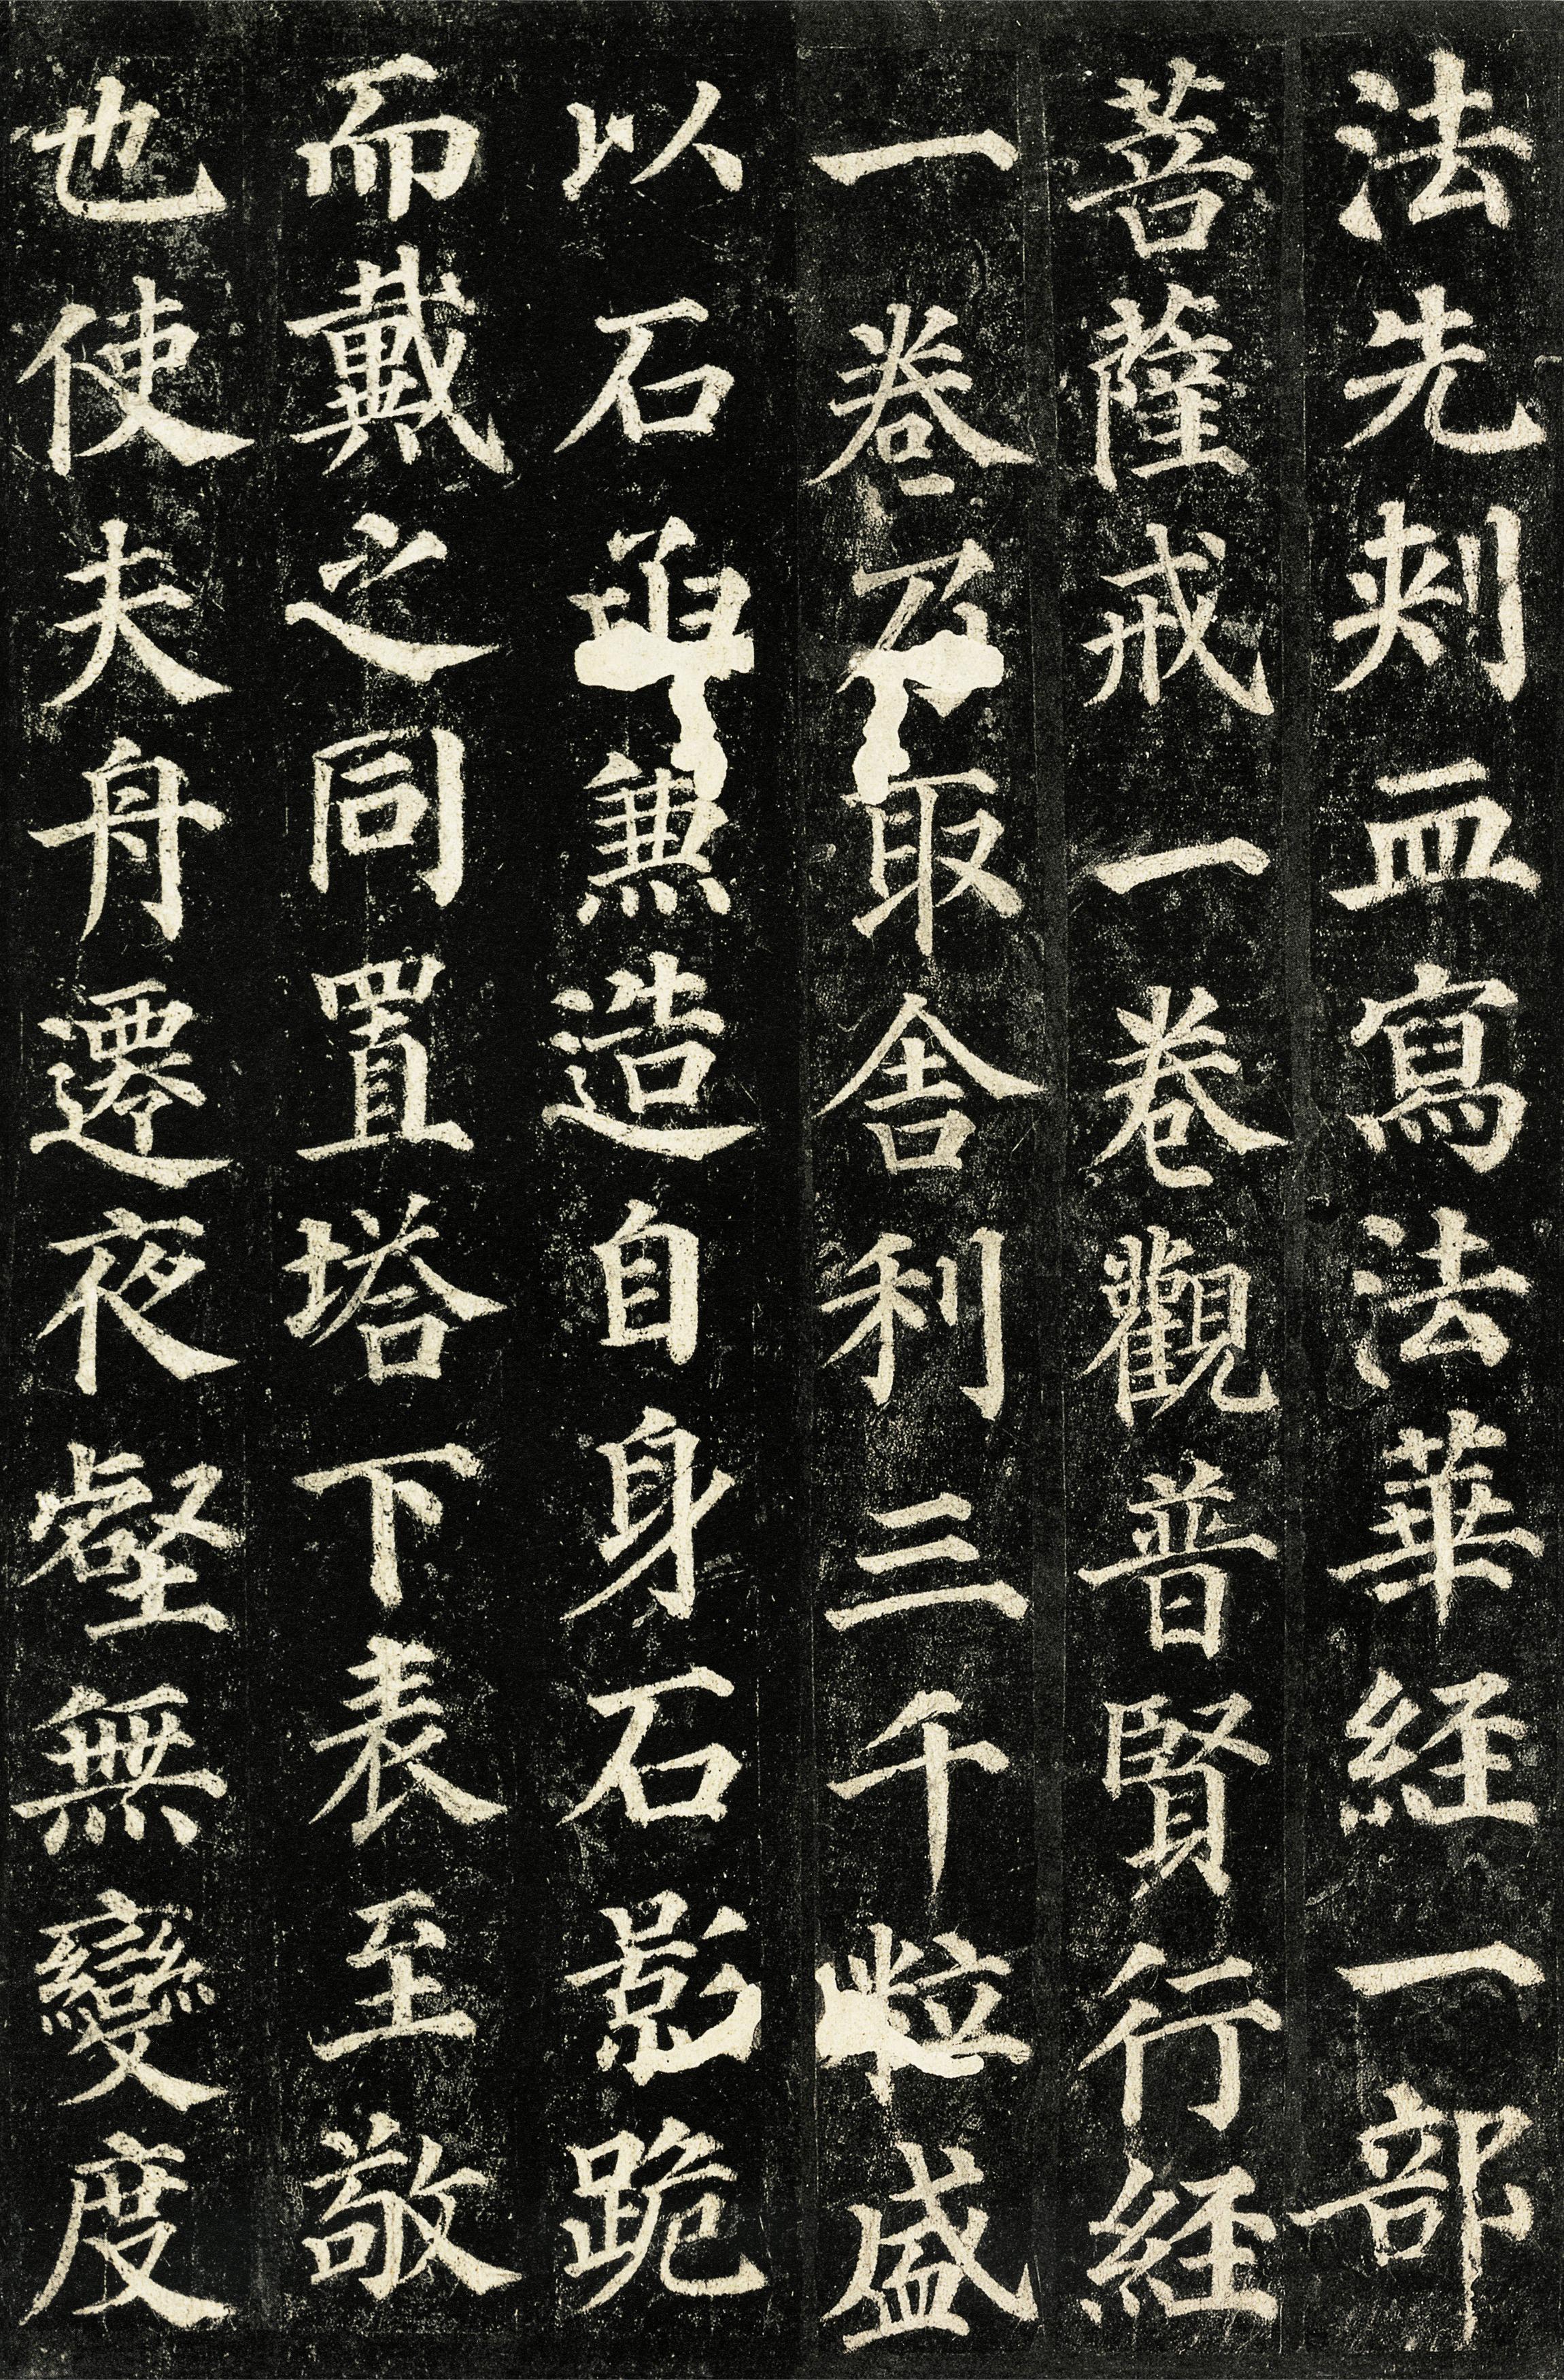 法先刺血寫法華經一部
菩薩戒一卷觀普賢行經
一卷乃取舍利三千粒盛
以石函兼造自身石影跪
而戴之同置塔下表至敬
也使夫舟遷夜壑無變度